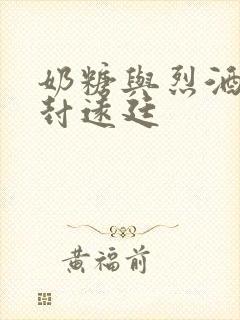 奶糖與烈酒
封遠廷
黃福前